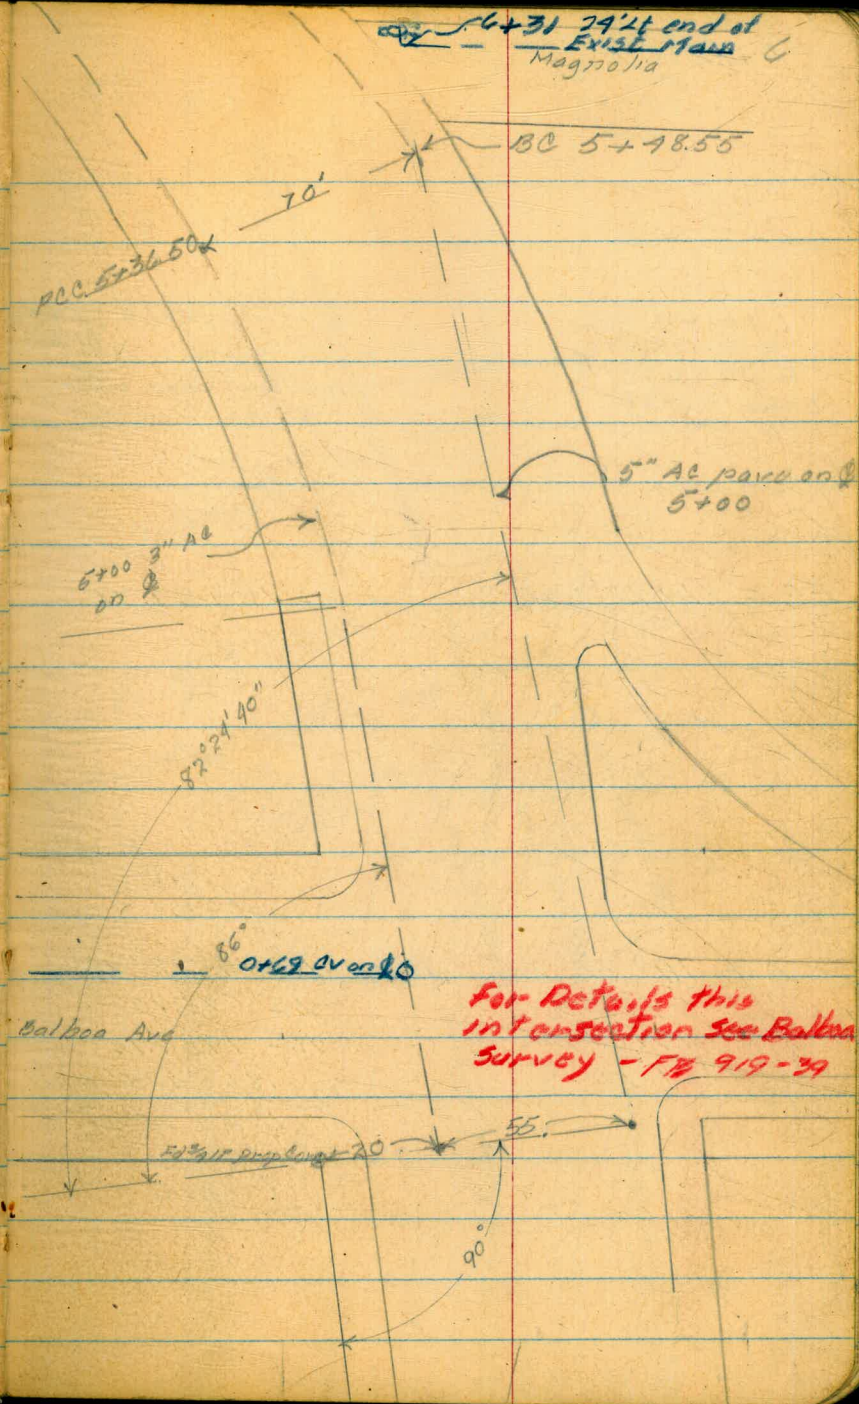 6+31 24' Lt end of
Exist Main
Magnolia
6
BC 5+48.55
70'
PCC 5+36.50
5" AC pave on ℄
5+00
5+00 3" AC
on ℄
82°24'40"
86°
0+69 CV on ℄
Balboa Ave
For Details this
intersection see Balboa
Survey - FB 919-39
55
20
90°